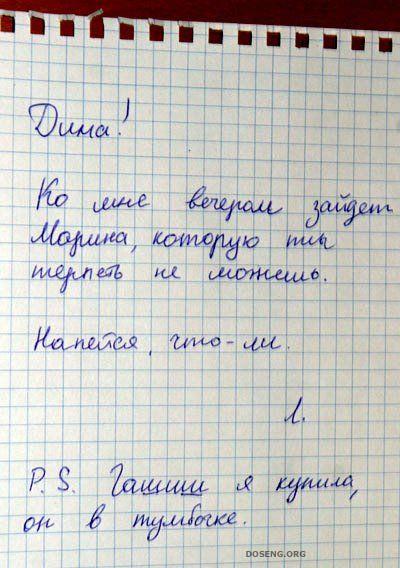 Дима!
Ко мне вечером зайдет
Марина, которую ты
терпеть не можешь.
Напейся, что-ли.
Л.
P.S. Гашиш я купила,
он в тумбочке.
DOSENG.ORG